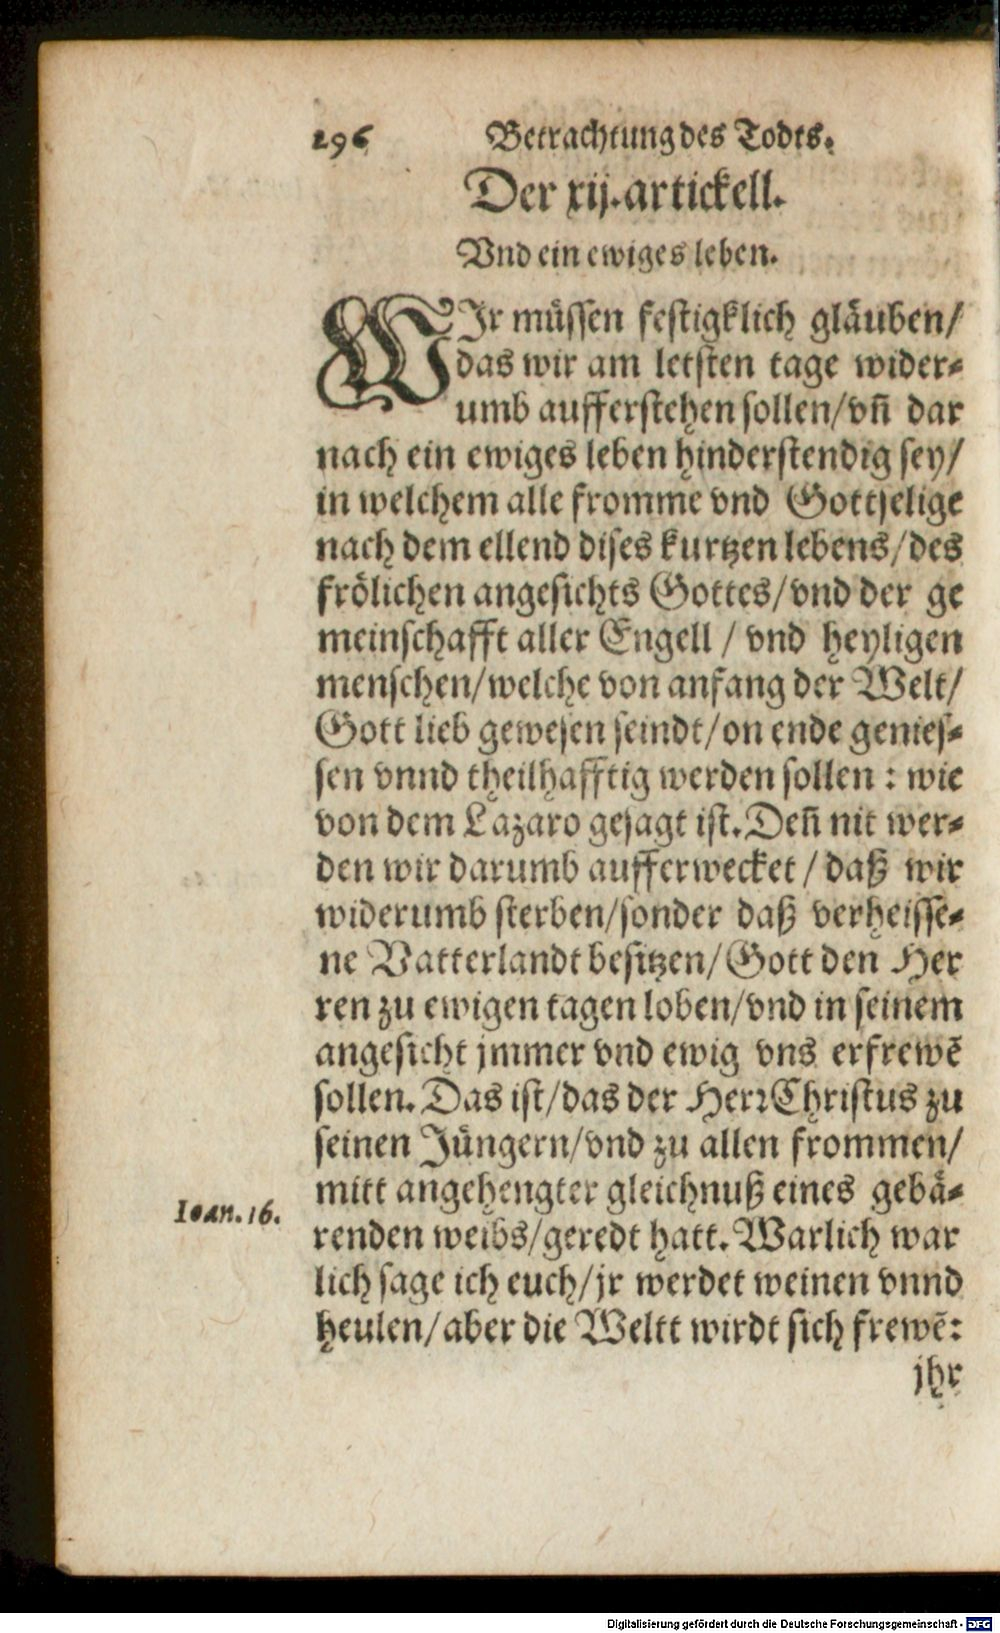 296 Betrachtung des Todts.
Der xij. artickell.
Vnd ein ewiges leben.
WIr müssen festigklich gläuben/
das wir am letsten tage wider-
umb aufferstehen sollen/vñ dar
nach ein ewiges leben hinderstendig sey/
in welchem alle fromme vnd Gottselige
nach dem ellend dises kurtzen lebens/des
frölichen angesichts Gottes/vnd der ge
meinschafft aller Engell / vnd heyligen
menschen/welche von anfang der Welt/
Gott lieb gewesen seindt/on ende genies-
sen vnnd theilhafftig werden sollen : wie
von dem Lazaro gesagt ist. Deñ nit wer-
den wir darumb aufferwecket / daß wir
widerumb sterben/sonder daß verheisse-
ne Vatterlandt besitzen/Gott den Her
ren zu ewigen tagen loben/vnd in seinem
angesicht jmmer vnd ewig vns erfrewẽ
sollen. Das ist/das der Herr Christus zu
seinen Jüngern/vnd zu allen frommen/
mitt angehengter gleichnuß eines gebä-
Ioan. 16.
renden weibs/geredt hatt. Warlich war
lich sage ich euch/jr werdet weinen vnnd
heulen/aber die Weltt wirdt sich frewẽ:
jhr
Digitalisierung gefördert durch die Deutsche Forschungsgemeinschaft - DFG